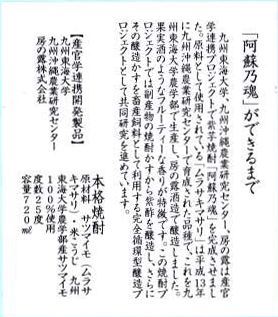 「阿蘇乃魂」ができるまで
九州東海大学、九州沖縄農業研究センター、房の露は産官
学連携プロジェクトで紫芋焼酎「阿蘇乃魂」を完成させまし
た。原料として使用されている「ムラサキマサリ」は平成13年
に九州沖縄農業研究センターで育成された品種で、これを九
州東海大学農学部で生産し、房の露酒造で醸造しました。
果実酒のようなフルーティーな香りが特徴です。この焼酎プ
ロジェクトでは副産物の焼酎かすから紫酢を醸造し、さらに
その醸造かすを畜産飼料として利用する完全循環型醸造プ
ロジェクトとして共同研究を進めています。
【産官学連携開発製品】
九州東海大学
九州沖縄農業研究センター
房の露株式会社
本格焼酎
原材料 サツマイモ(ムラサ
キマサリ)・米こうじ 九州
東海大学農学部産サツマイモ
100%使用
度数25度
容量720㎖